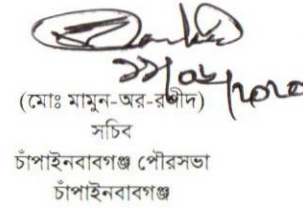 (মোঃ মামুন-অর-রশীদ)
সচিব
চাঁপাইনবাবগঞ্জ পৌরসভা
চাঁপাইনবাবগঞ্জ